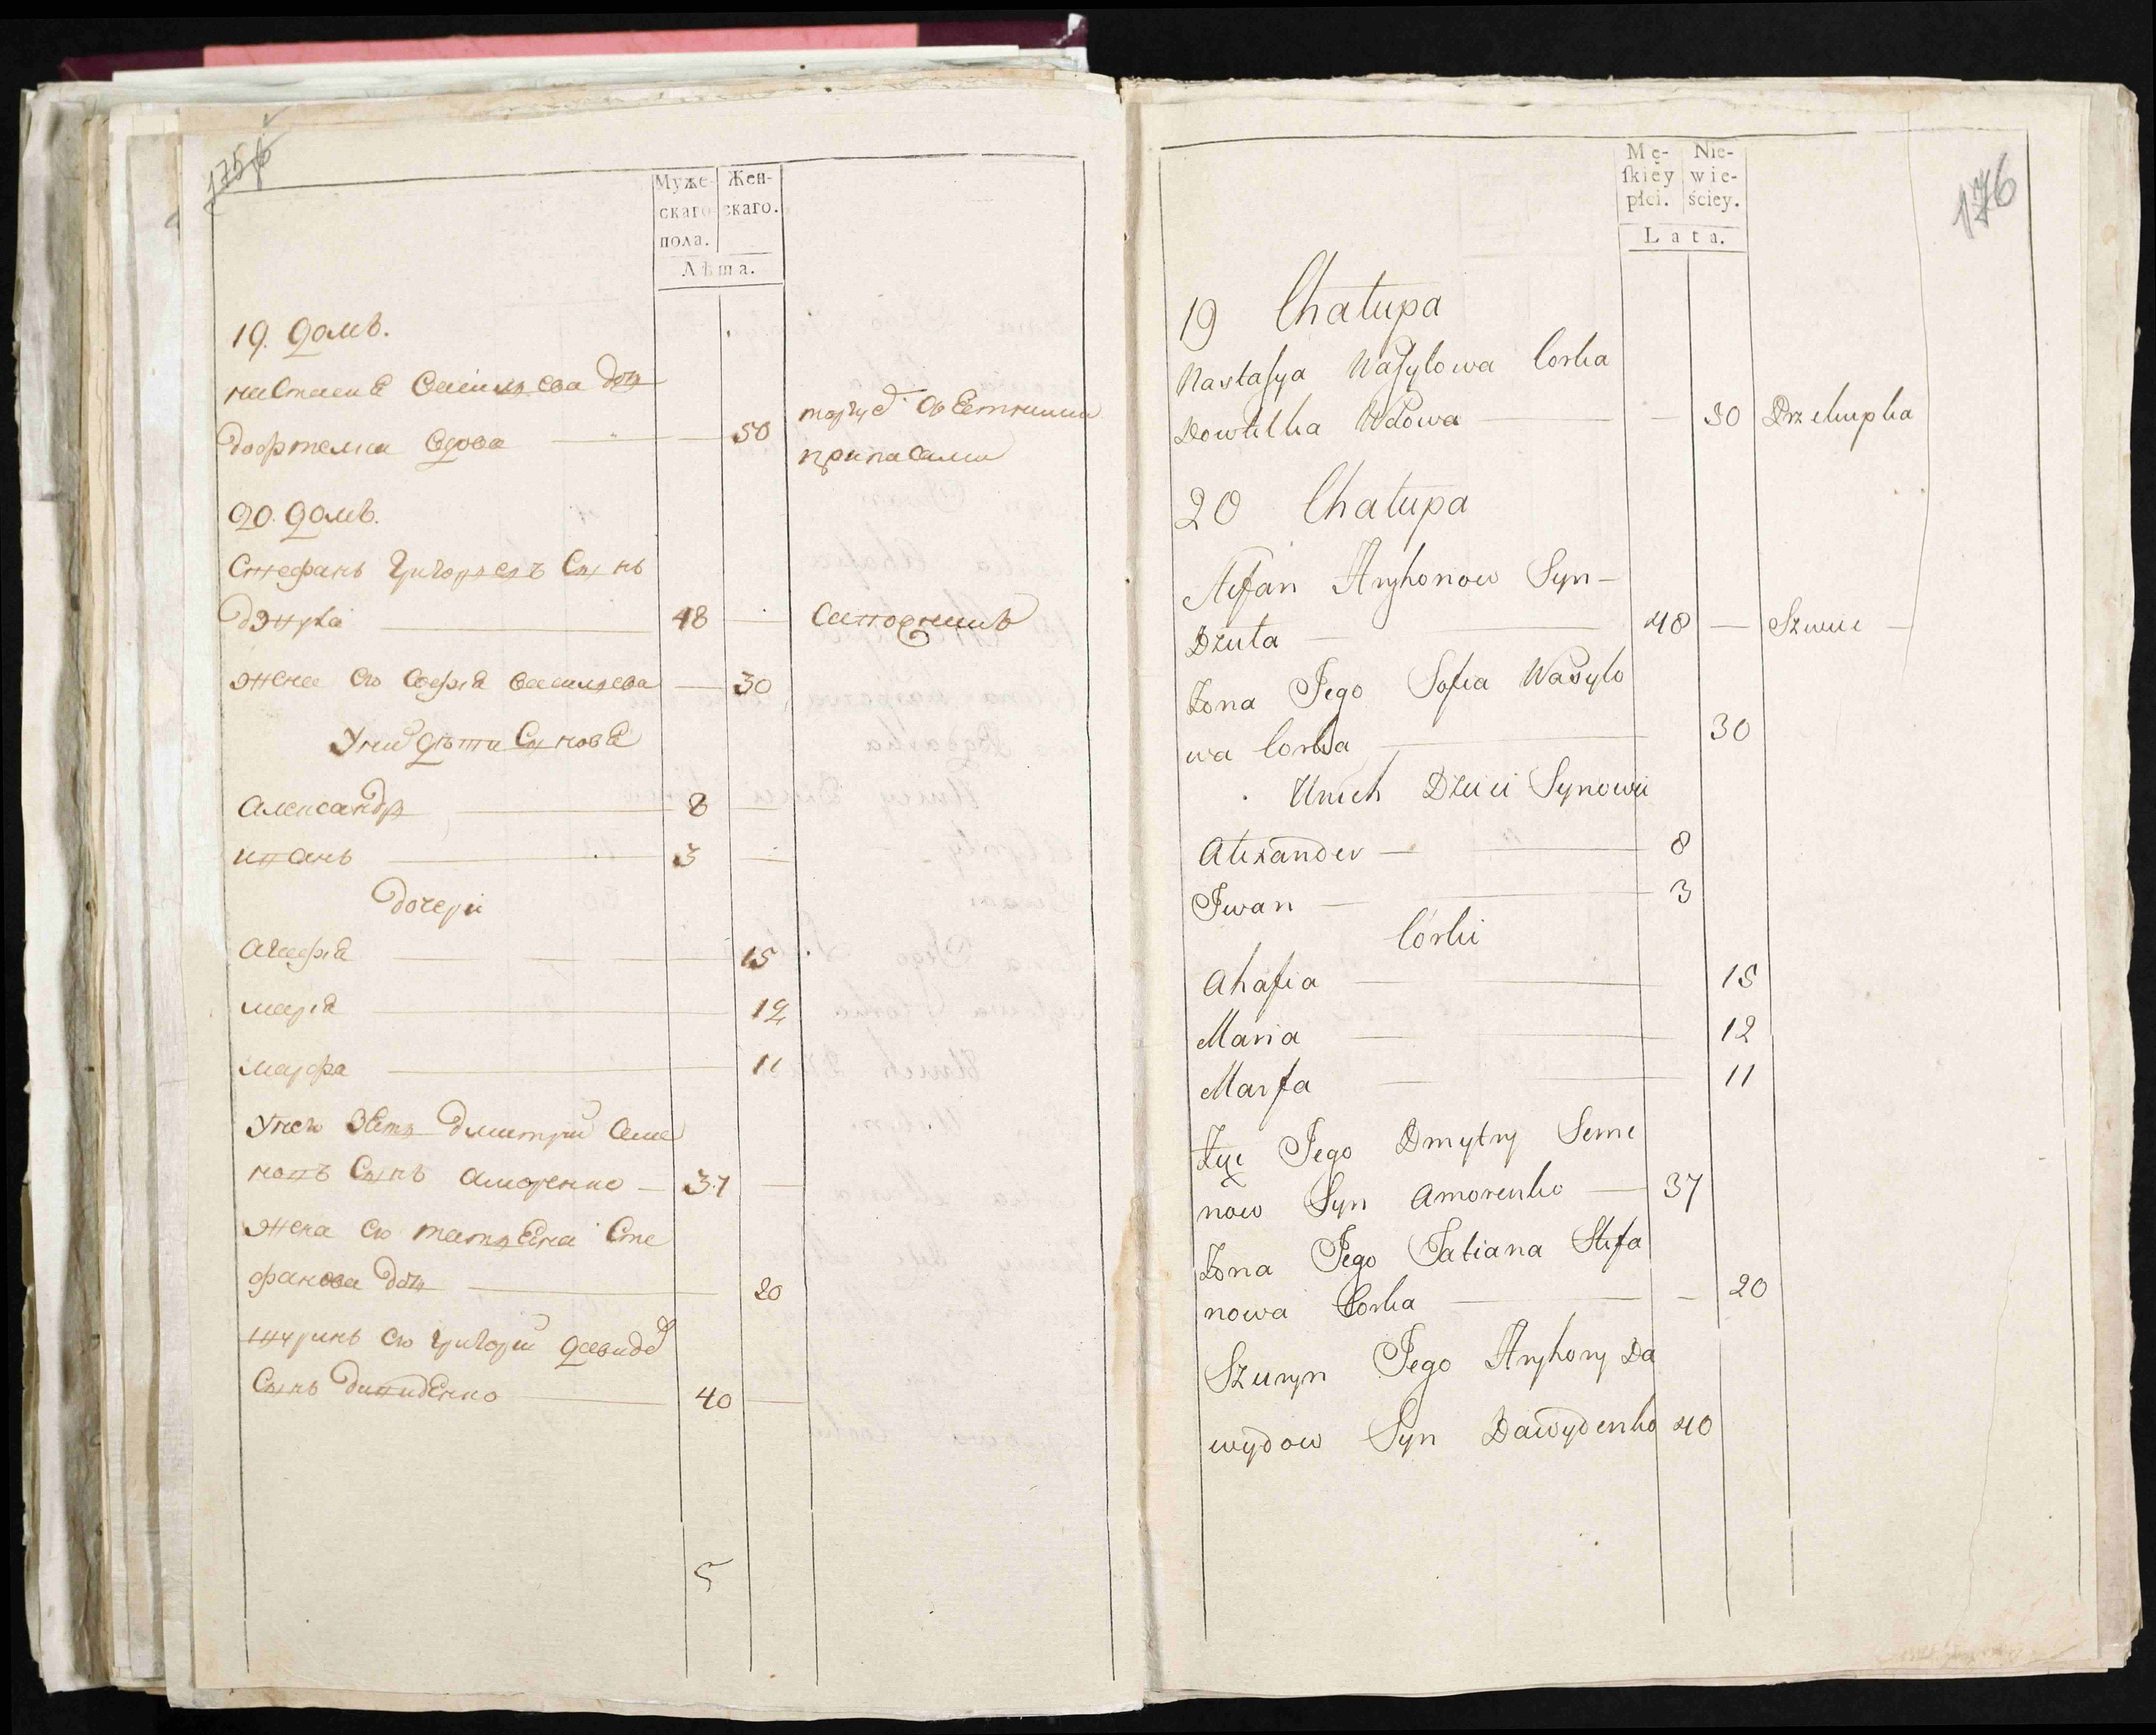 175
Муже- Жен-
скаго скаго.
пола.
Лѣта.
19. домъ.
настасия василева дочь
вдова 50 торгуе
припасами
20. домъ.
Стефанъ григориевъ Сынъ
дзюта 48
жена его софия василева 30
Унихъ дѣти Сыновя
александръ 8
иванъ 3
дочери
агафия 15
мария 12
марфа 11
Унего зять дмитрий Семе
новъ Сынъ аморенко 37
жена его татяна Сте
фанова дочь 20
шуринъ его григорий давидов
Сынъ давиденко 40
5
176
Mę- Nie-
skiey wie-
płci. ściey.
Lata.
19 Chałupa
Nastasya Wasylowa Corka
Wdowa — 50 Przekupka
20 Chałupa
Stefan Hryhorow Syn
Dziuta 48 — Szewc
Zona Jego Sofia Wasylo
wa Corka 30
Unich Dzieci Synowie
Alexander 8
Iwan 3
Córki
Ahafia 15
Maria 12
Marfa 11
Zięć Jego Dmytry Seme
now Syn Amorenko 37
Zona Jego Tatiana Stefa
nowa Corka — 20
Szuryn Jego Hryhory Da
wydow Syn Dawydenko 40